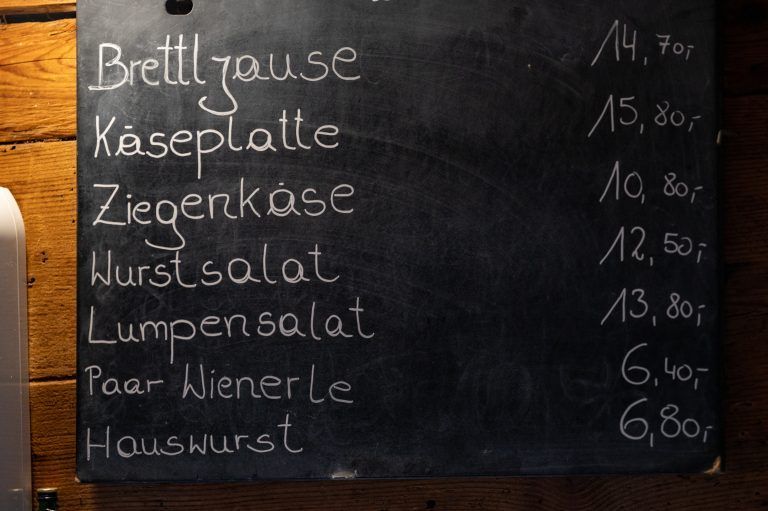 Brettljause 14,70,-
Käseplatte 15,80,-
Ziegenkäse 10,80,-
Wurstsalat 12,50,-
Lumpensalat 13,80,-
Paar Wienerle 6,40,-
Hauswurst 6,80,-